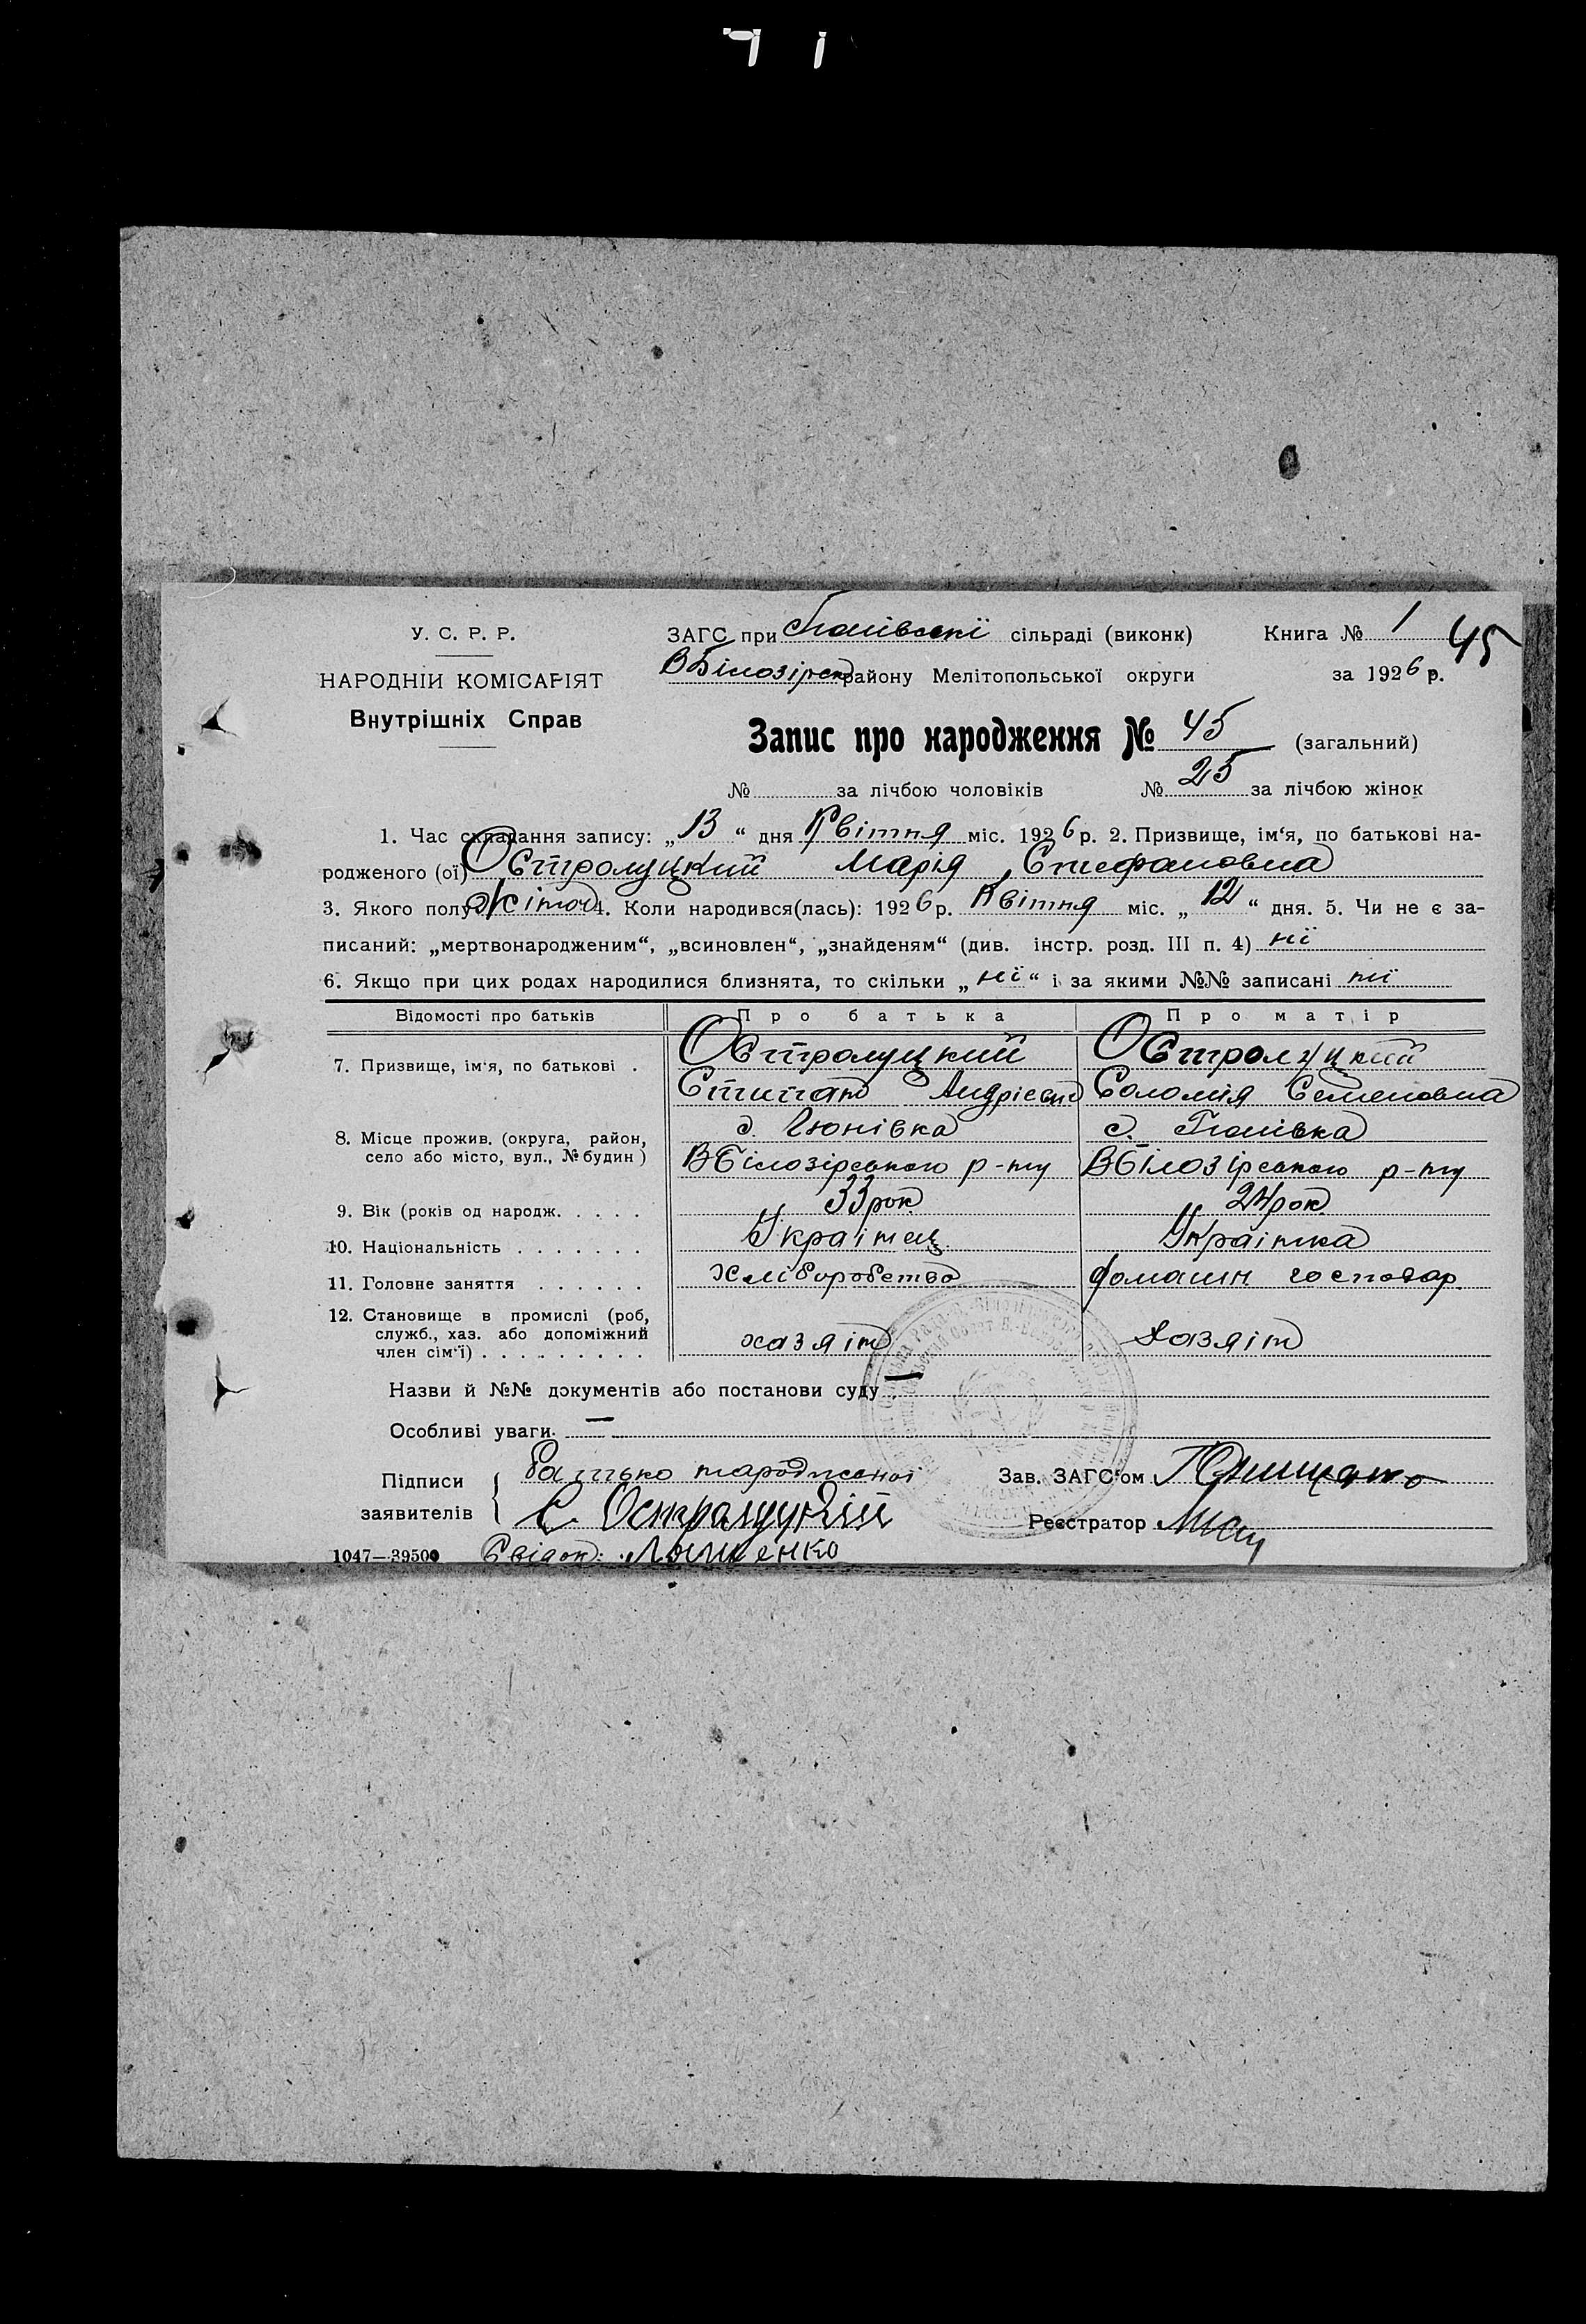 У. С. Р. Р.
НАРОДНІЙ КОМІСАРІЯТ
Внутрішніх Справ
ЗАГС при сільраді (виконк) Книга № 1 45
ВБілозірск району Мелітопольської округи за 1926 р.
Запис про народження № 45 (загальний)
№ за лічбою чоловіків № 25 за лічбою жінок
1. Час складання запису: „13“ дня Квітня міс. 1926 р. 2. Призвище, ім‘я, по батькові на-
родженого (ої) Остролуцкий Марія Стефановна
3. Якого полу Жіноч 4. Коли народився(лась): 1926 р. Квітня міс. „12“ дня. 5. Чи не є за-
писаний: „мертвонародженим“, „всиновлен“, „знайденям“ (див. інстр. розд. III п. 4) нї
6. Якщо при цих родах народилися близнята, то скільки „нї“ і за якими №№ записані нї
Відомості про батьків Про батька Про матір
7. Призвище, ім‘я, по батькові . Остролуцкий Остролуцкий
Андрієвич Соломія Семеновна
8. Місце прожив. (округа, район, село або місто, вул., № будин) с. с.
ВБілозірського р-ну ВБілозірського р-ну
9. Вік (років од народж. . . . . 33 рок 24 рок
10. Національність . . . . . . . Українец Українка
11. Головне заняття . . . . . . Хліборобство домашн господар
12. Становище в промислі (роб, служб., хаз. або допоміжний член сім‘ї) . . . . . . . . . хазяін хазяін
Назви й №№ документів або постанови суду —
Особливі уваги. —
Підписи заявителів батько народженої Зав. ЗАГС‘ом
С. Остролуцкий Реєстратор
1047—39500 Свідок: Ляшенко